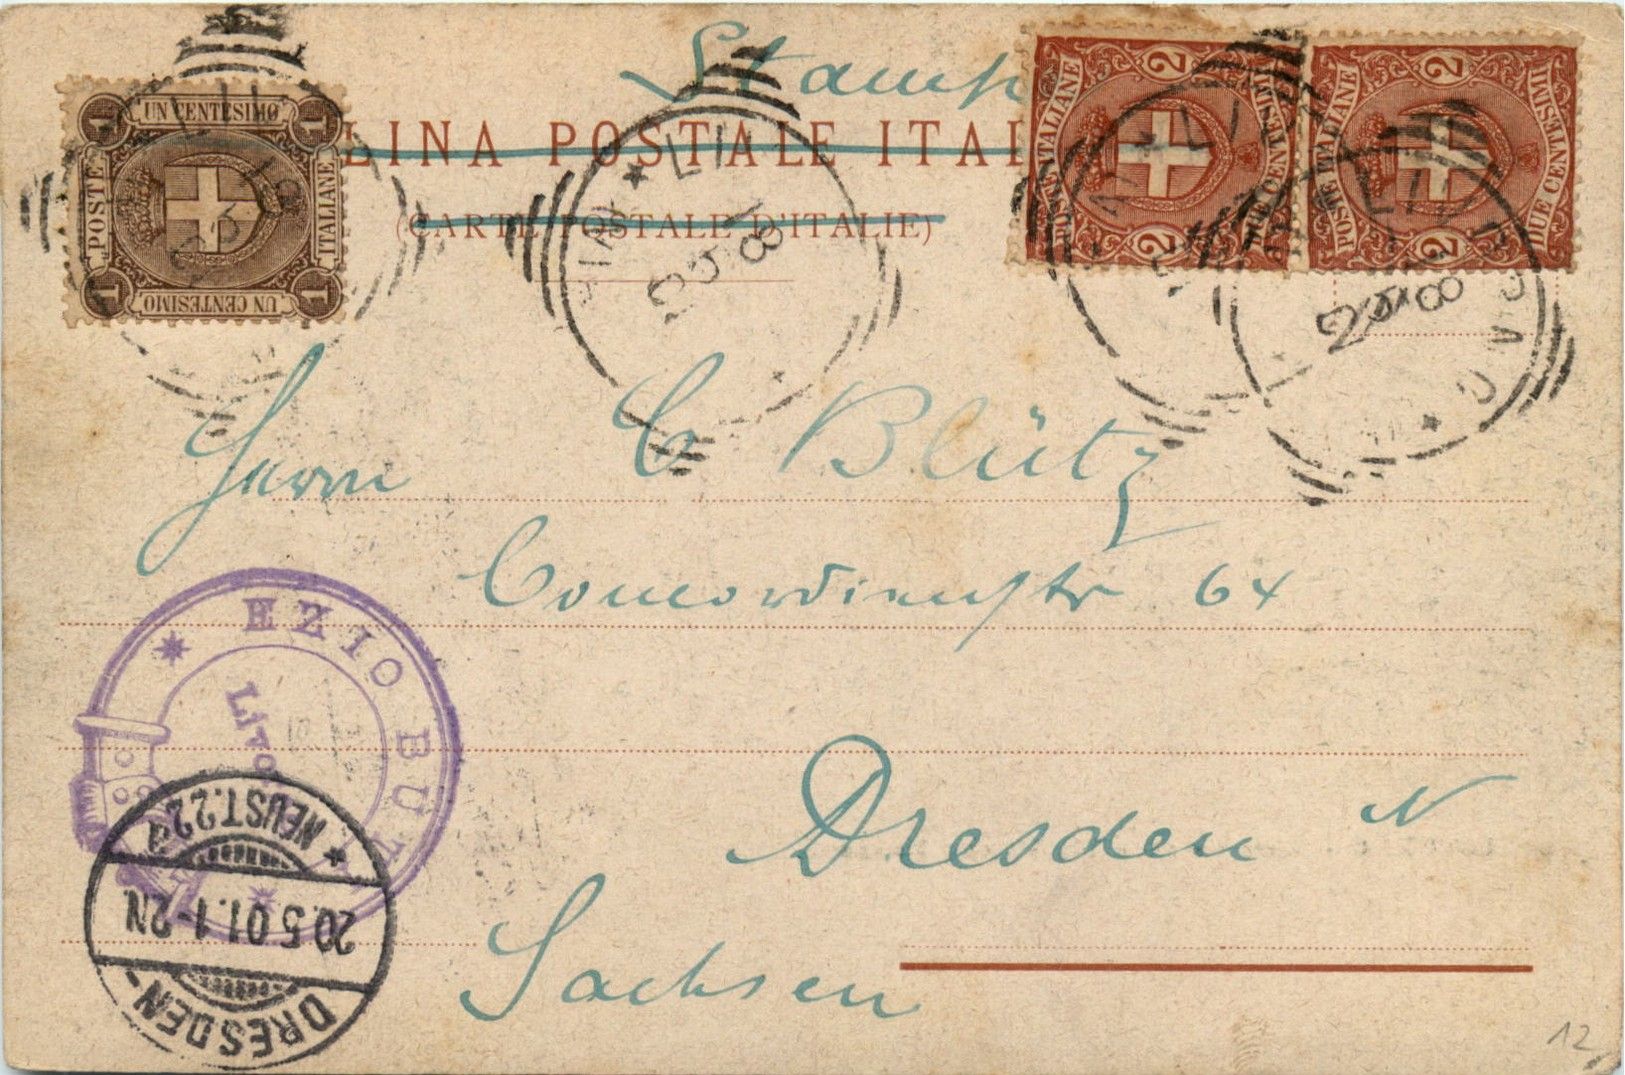 Stamp
LINA POSTALE ITAL
(CARTE POSTALE D'ITALIE)
UN CENTESIMO
1 1
POSTE ITALIANE
1 1
UN CENTESIMO
POSTE ITALIANE
2 2
DUE CENTESIMI
POSTE ITALIANE
2 2
DUE CENTESIMI
LIVORNO
Herrn C Blütz
Concordienstr 64
Dresden N
Sachsen
EZIO BU
Livo
DRESDEN-
20.5.01.1-2N.
NEUST.22a
12